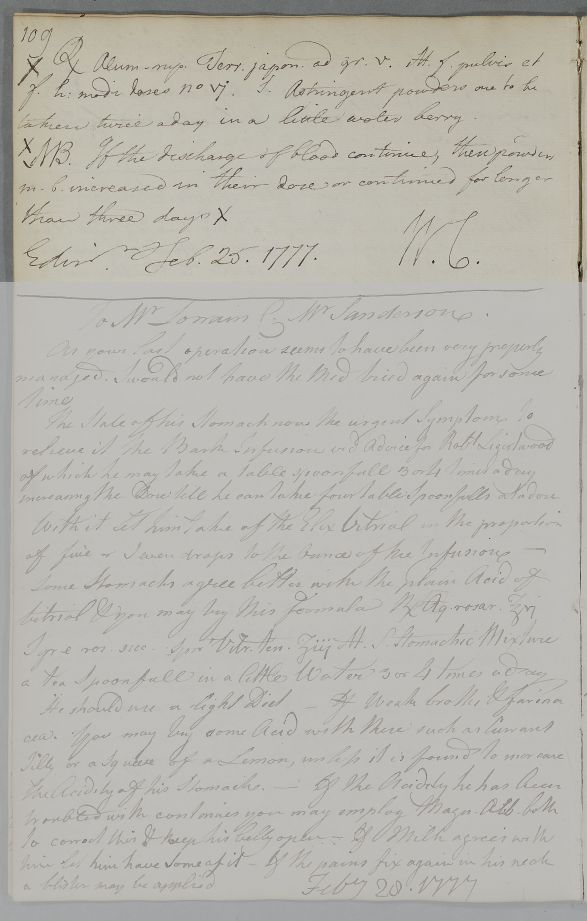 109
X ℞ Alum. rup. Terr. japon. ad gr. v. M. f. pulvis et
f. h. modi doses no vj. S. Astringent powders one to be
taken twice a day in a little water berry.
X NB. If the discharge of blood continue, then powders
m. b. increased in their dose or continued for longer
than three days X
Edinr. Feb. 25. 1777. W. C.
To Mr Lorrain & Mr Sanderson.
As your last operation seems to have been very properly
managed. I would not have the Med tried again for some
time
The State of his Stomach now the urgent Symptom. To
relieve it the Bark Infusion vid Advice for Robt Ligertwood
of which he may take a table spoonfull 3 or 4 times a day
increasing the Dose till he can take four table spoonfulls at a dose
With it let him take of the Elix Vitriol in the proportion
of five or Seven drops to the ounce of the Infusion —
Some Stomachs agree better with the plain Acid of
vitriol & you may try this Formula ℞ Aq. rosar. ℥vj
Syr e ros. sicc. Spr Vitr. ten. M. S. Stomachic Mixture
a tea Spoonfull in a little Water 3 or 4 times a day
He should use a light Diet — Of Weak broths & farina
cea. You may try some Acid with these such as Currant
Jilly or a Squeeze of a Lemon, unless it is found to increase
the Acidity of his Stomach. — If the Acidity he has been
troubled with continues you may employ Magn. Alb. both
to correct this & keep his belly open — If Milk agrees with
him let him have some of it — If the pains fix again in his neck
a blister may be applied Feby 28. 1777